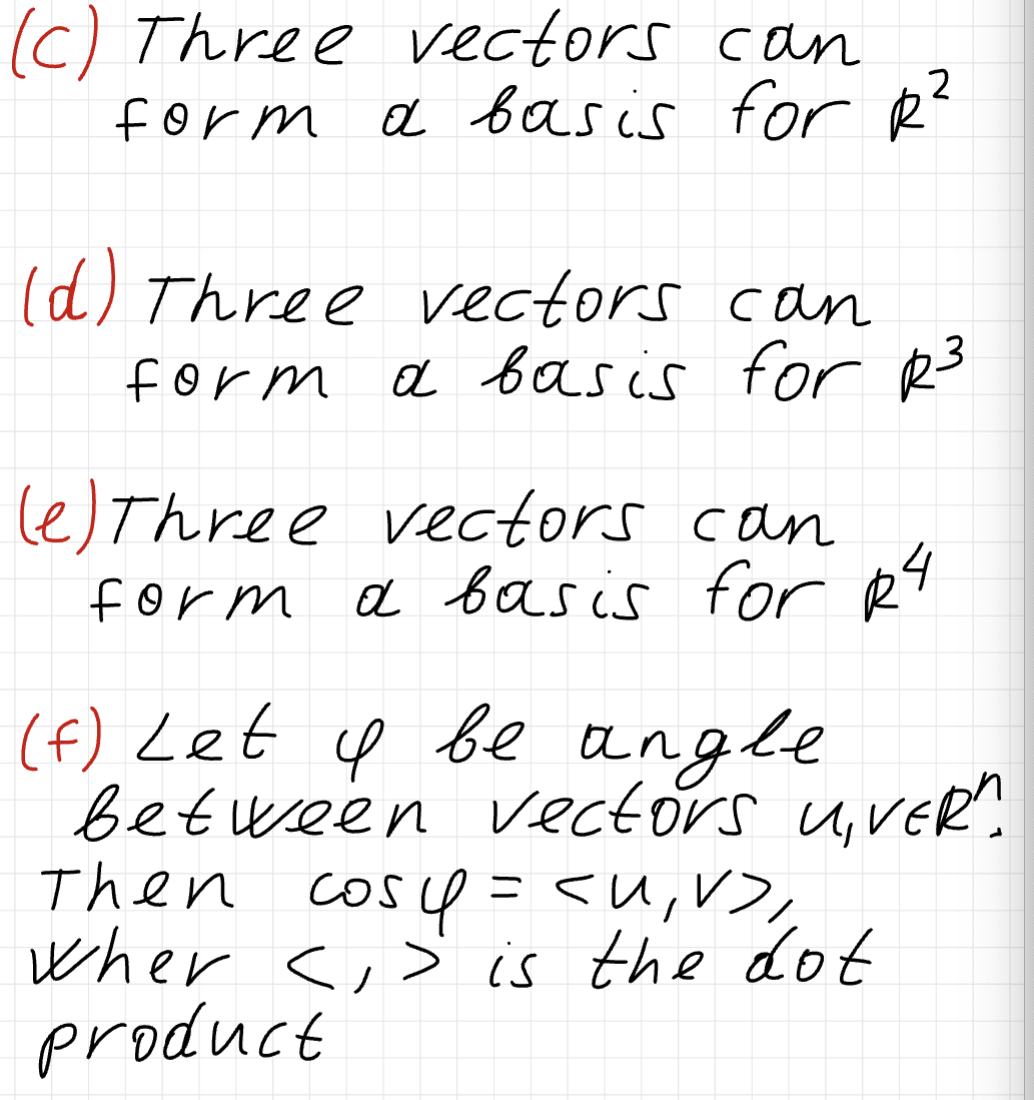 (c) Three vectors can
form a basis for R²
(d) Three vectors can
form a basis for R³
(e) Three vectors can
form a basis for R⁴
(f) Let φ be angle
between vectors u,v∈Rⁿ.
Then cosφ = <u,v>,
wher <,> is the dot
product